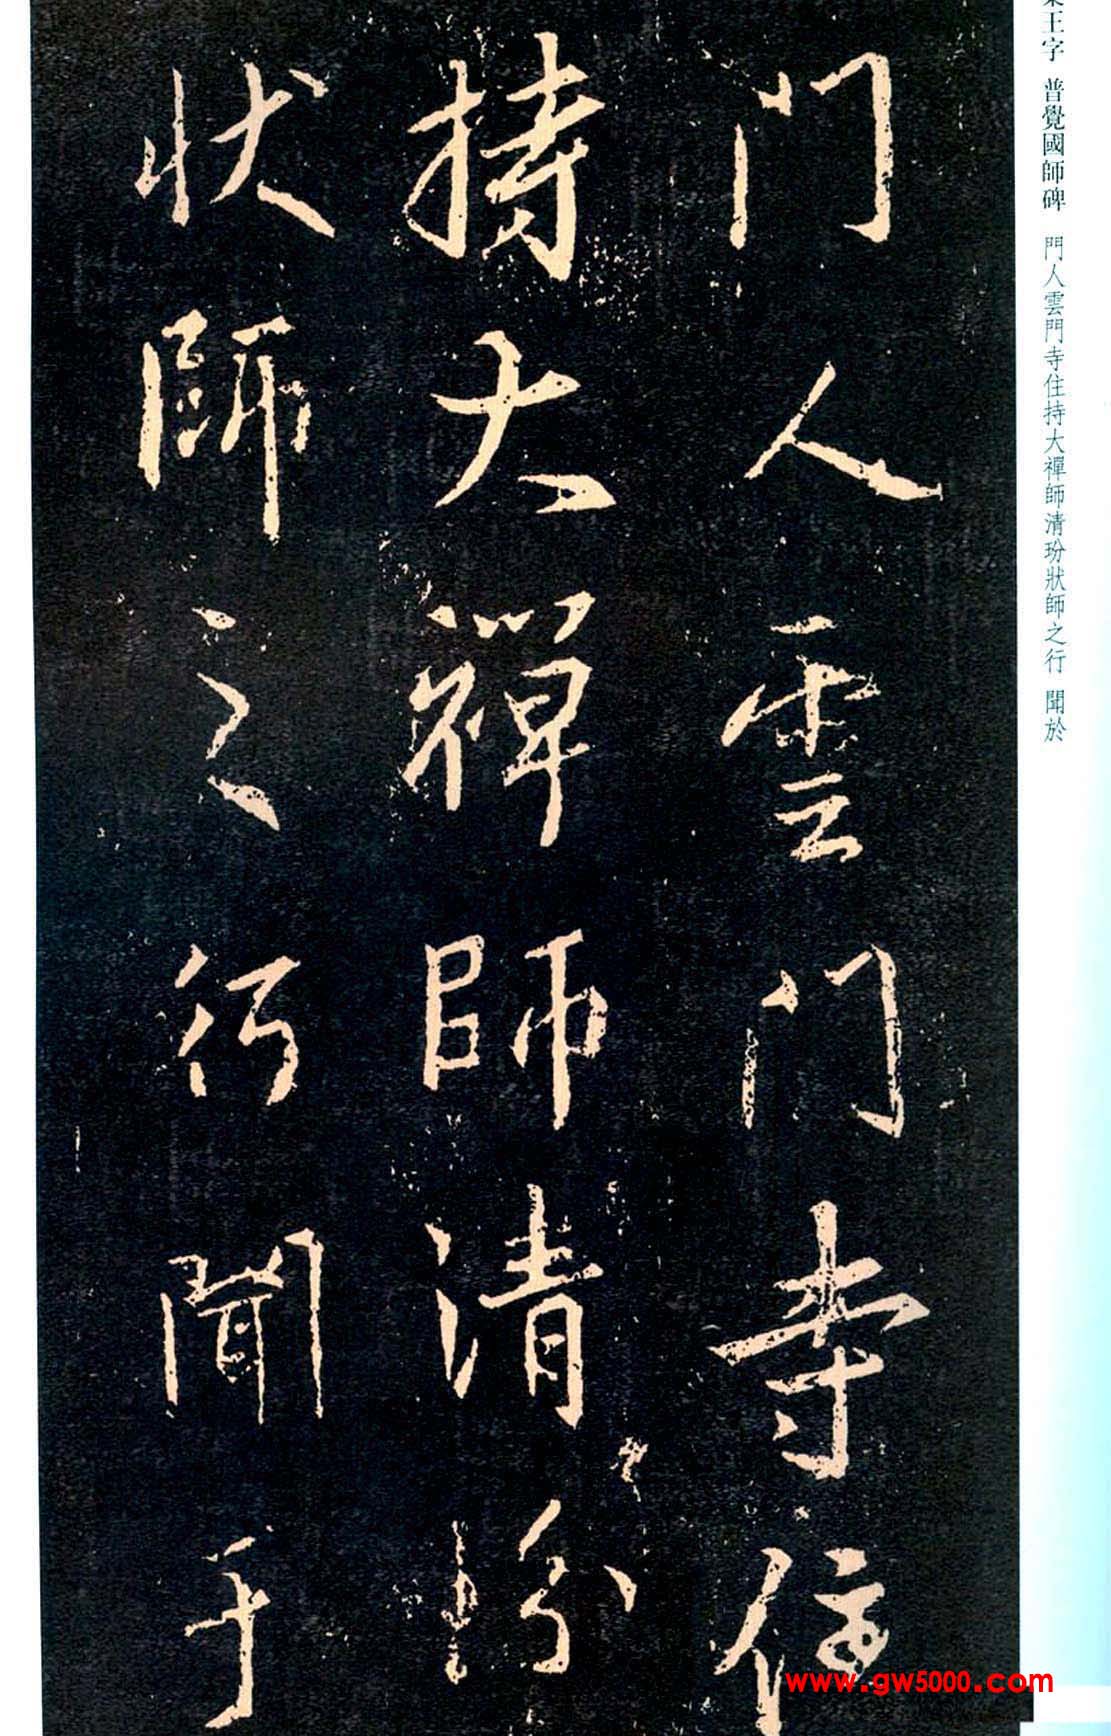 王字 普覺國師碑 門人雲門寺住持大禪師清玢狀師之行 聞於
門人雲門寺住
持大禪師清玢
狀師之行聞于
www.gw5000.com